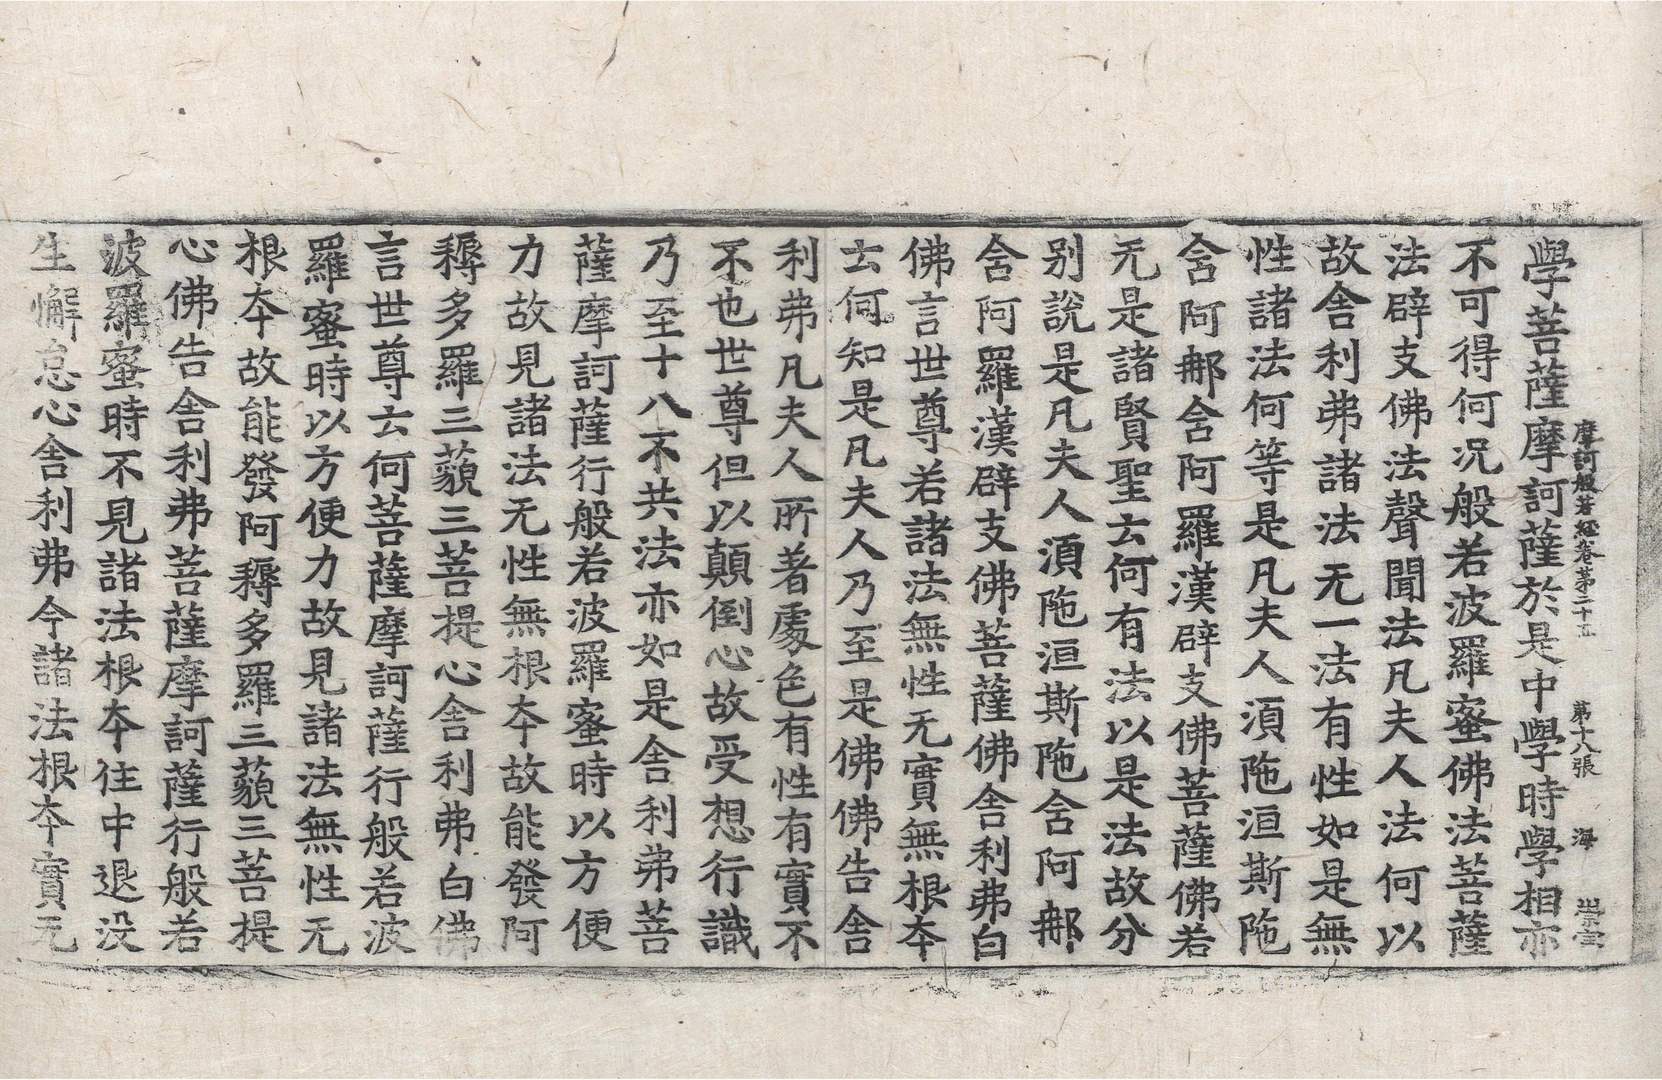 摩訶般若經卷第二十五 第十八張 海
學菩薩摩訶薩於是中學時學相亦
不可得何况般若波羅蜜佛法菩薩
法辟支佛法聲聞法凡夫人法何以
故舍利弗諸法无一法有性如是無
性諸法何等是凡夫人湏陁洹斯陁
含阿那含阿羅漢辟支佛菩薩佛若
无是諸賢聖云何有法以是法故分
别說是凡夫人湏陁洹斯陁含阿那
含阿羅漢辟支佛菩薩佛舍利弗白
佛言世尊若諸法無性无實無根夲
云何知是凡夫人乃至是佛佛告舍
利弗凡夫人所著處色有性有實不
不也世尊但以顛倒心故受想行識
乃至十八不共法亦如是舍利弗菩
薩摩訶薩行般若波羅蜜時以方便
力故見諸法无性無根夲故能發阿
耨多羅三藐三菩提心舍利弗白佛
言世尊云何菩薩摩訶薩行般若波
羅蜜時以方便力故見諸法無性无
根夲故能發阿耨多羅三藐三菩提
心佛告舍利弗菩薩摩訶薩行般若
波羅蜜時不見諸法根夲住中退没
生懈怠心舍利弗今諸法根夲實无